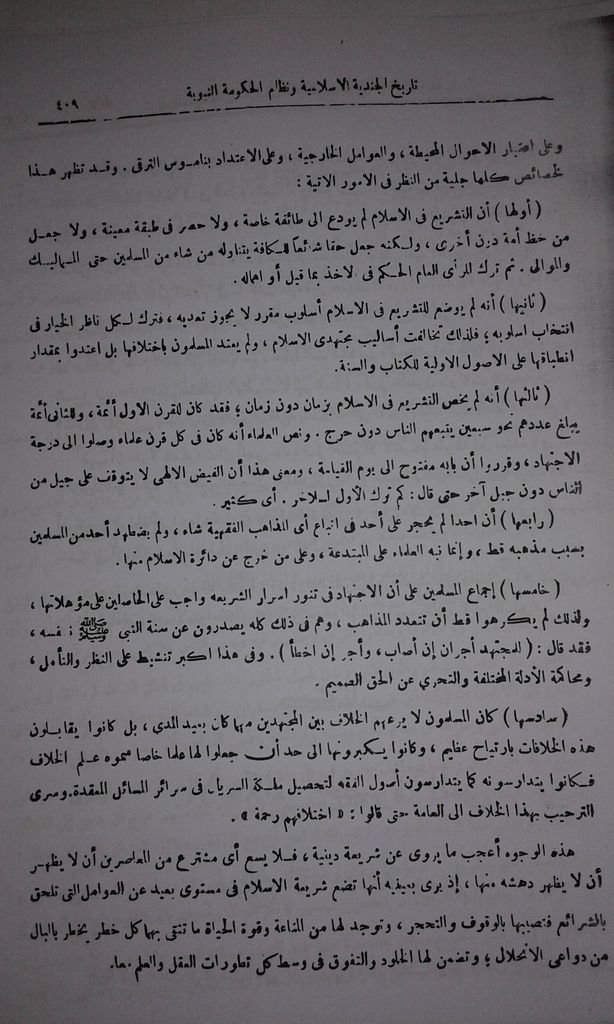 تاريخ الجندية الاسلامية ونظام الحكومة النبوية
٤٠٩
وعلى اعتبار الاحوال المحيطة ، والعوامل الخارجية ، وعلى الاعتداد بناموس الترقى . وقد تظهر هذا
لخصائص كلها جلية من النظر فى الامور الاتية :
( أولها ) أن التشريع فى الاسلام لم يودع الى طائفة خاصة ، ولا حصر فى طبقة معينة ، ولا جعل
من حظ أمة دون أخرى ، ولكنه جعل حقا شائعاً للكافة يتناوله من شاء من المسلمين حتى المماليك
والموالى . ثم ترك للرأى العام الحكم فى الاخذ بما قيل أو اهماله .
( ثانيها ) أنه لم يوضع للتشريع فى الاسلام أسلوب مقرر لا يجوز تعديه ، فترك لكل ناظر الخيار فى
انتخاب اسلوبه ؛ فلذلك تخالفت أساليب مجتهدى الاسلام ، ولم يعتد المسلمون باختلافها بل اعتدوا بمقدار
انطباقها على الاصول الاولية للكتاب والسنة.
( ثالثها ) أنه لم يخص التشريع فى الاسلام بزمان دون زمان ؛ فقد كان للقرن الاول أئمة ، وللثانى أئمة
يبلغ عددهم نحو سبعين يتبعهم الناس دون حرج . ونص العلماء أنه كان فى كل قرن علماء وصلوا الى درجة
الاجتهاد ، وقرروا أن بابه مفتوح الى يوم القيامة ، ومعنى هذا أن الفيض الالهى لا يتوقف على جيل من
الناس دون جيل آخر حتى قال : كم ترك الأول للآخر . أى كثير .
( رابعها ) أن احدا لم يحجر على أحد فى اتباع أى المذاهب الفقهية شاء ، ولم يضطهد أحد من المسلمين
بسبب مذهبه قط ، وإنما نبه العلماء على المبتدعة ، وعلى من خرج عن دائرة الاسلام منها .
( خامسها ) إجماع المسلمين على أن الاجتهاد فى تنور اسرار الشريعة واجب على الحاصلين على مؤهلاتها ،
ولذلك لم يكرهوا قط أن تتعدد المذاهب ، وهم فى ذلك كله يصدرون عن سنة النبى ﷺ نفسه ،
فقد قال : ( للمجتهد أجران إن أصاب ، وأجر إن اخطأ ) . وفى هذا اكبر تنشيط على النظر والتأمل ،
ومحاكمة الأدلة المختلفة والتحرى عن الحق الصميم .
( سادسها ) كان المسلمون لا يرعبهم الخلاف بين المجتهدين مهما كان بعيد المدى ، بل كانوا يقابلون
هذه الخلافات بارتياح عظيم ، وكانوا يكبرونها الى حد أن جعلوا لها علما خاصا سموه علم الخلاف
فكانوا يتدارسونه كما يتدارسون أصول الفقه لتحصيل ملكة السريان فى سرائر المسائل المعقدة.وسرى
الترحيب بهذا الخلاف الى العامة حتى قالوا : « اختلافهم رحمة » .
هذه الوجوه أعجب ما يروى عن شريعة دينية ، فلا يسع أى مشترع من المعاصرين أن لا يظهر
أن لا يظهر دهشه منها ، إذ يرى بعينيه أنها تضع شريعة الاسلام فى مستوى بعيد عن العوامل التى تلحق
بالشرائع فتصيبها بالوقوف والتحجر ، وتوجد لها من المناعة وقوة الحياة ما تتقى بهما كل خطر يخطر بالبال
من دواعى الانحلال ؛ وتضمن لها الخلود والتفوق فى وسط كل تطورات العقل والعلم معا.